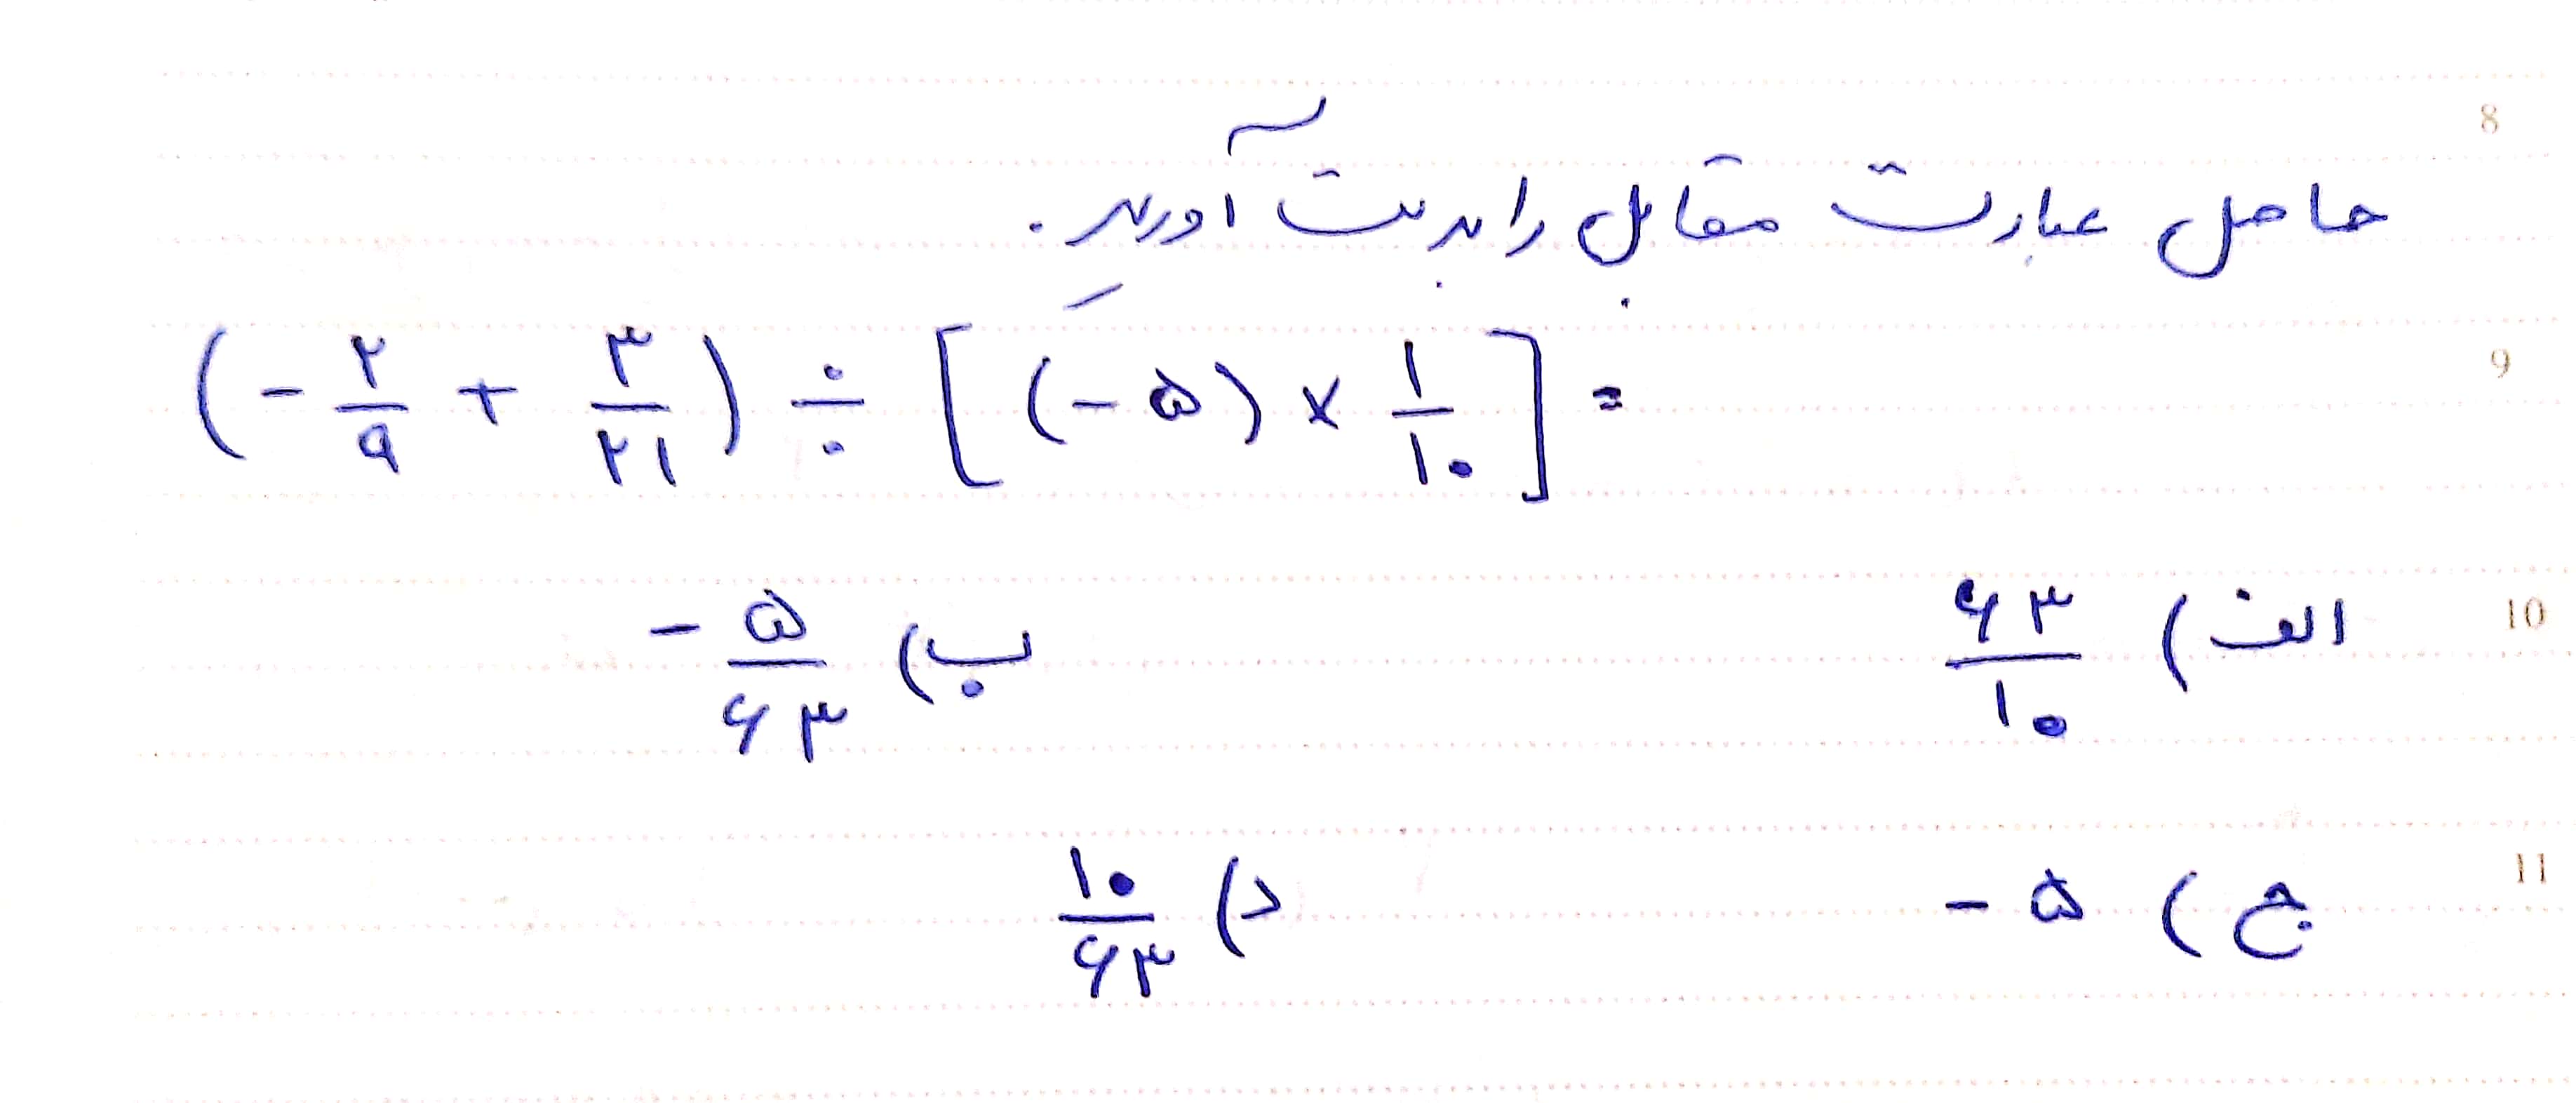 8
حاصل عبارت مقابل را بدست آورید.
9
(-۲/۹ + ۳/۲۱) ÷ [(-۵) × ۱/۱۰] =
10
الف) ۶۳/۱۰ ب) -۵/۶۳
11
ج) -۵ د) ۱۰/۶۳